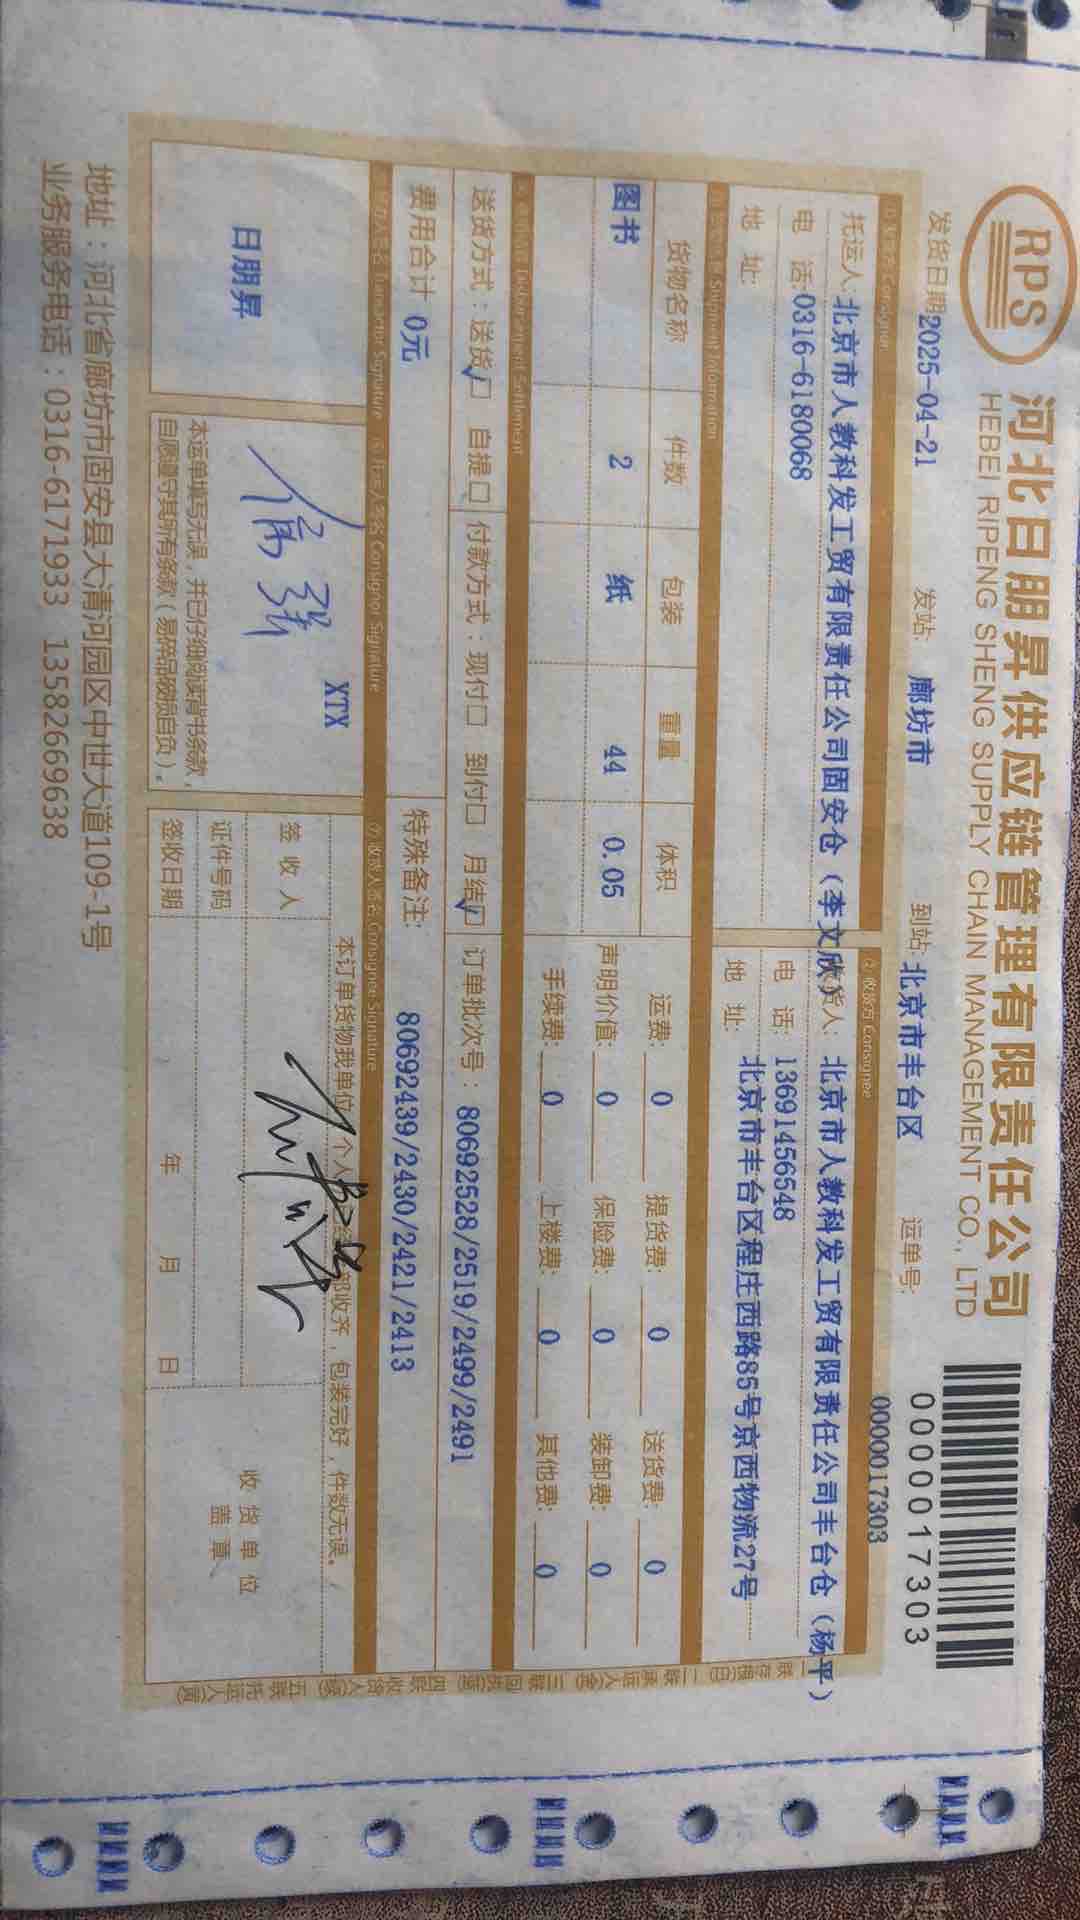 RPS
河北日朋昇供应链管理有限责任公司
HEBEI RIPENG SHENG SUPPLY CHAIN MANAGEMENT CO., LTD
0000017303
发货日期 2025-04-21 发站: 廊坊市 到站: 北京市丰台区 运单号: 0000017303
Consignor ②收货方 Consignee
托运人: 北京市人教科发工贸有限责任公司固安仓（李文欣） 货人: 北京市人教科发工贸有限责任公司丰台仓（杨平）
电 话: 0316-6180068 电 话: 13691456548
地 址: 地 址: 北京市丰台区程庄西路85号京西物流27号
Shipment Information
货物名称 件数 包装 重量 体积 运费: 0 提货费: 0 送货费: 0
图书 2 纸 44 0.05 声明价值: 0 保险费: 0 装卸费: 0
手续费: 0 上楼费: 0 其他费: 0
Disbursement Settlement
送货方式：送货☑ 自提□ 付款方式：现付□ 到付□ 月结☑ 订单批次号：80692528/2519/2499/2491
费用合计 0元 特殊备注: 80692439/2430/2421/2413
Transactor Signature Consignor Signature ⑦收货人签名 Consignee Signature
日朋昇
XTX
本运单填写无误，并已仔细阅读背书条款，
自愿遵守其所有条款（易碎品破损自负）。
本订单货物我单位 个人 部收齐，包装完好，件数无误。
签 收 人
证件号码
签收日期 年 月 日
收 货 单 位
盖 章
地址：河北省廊坊市固安县大清河园区中世大道109-1号
业务服务电话：0316-6171933 13582669638